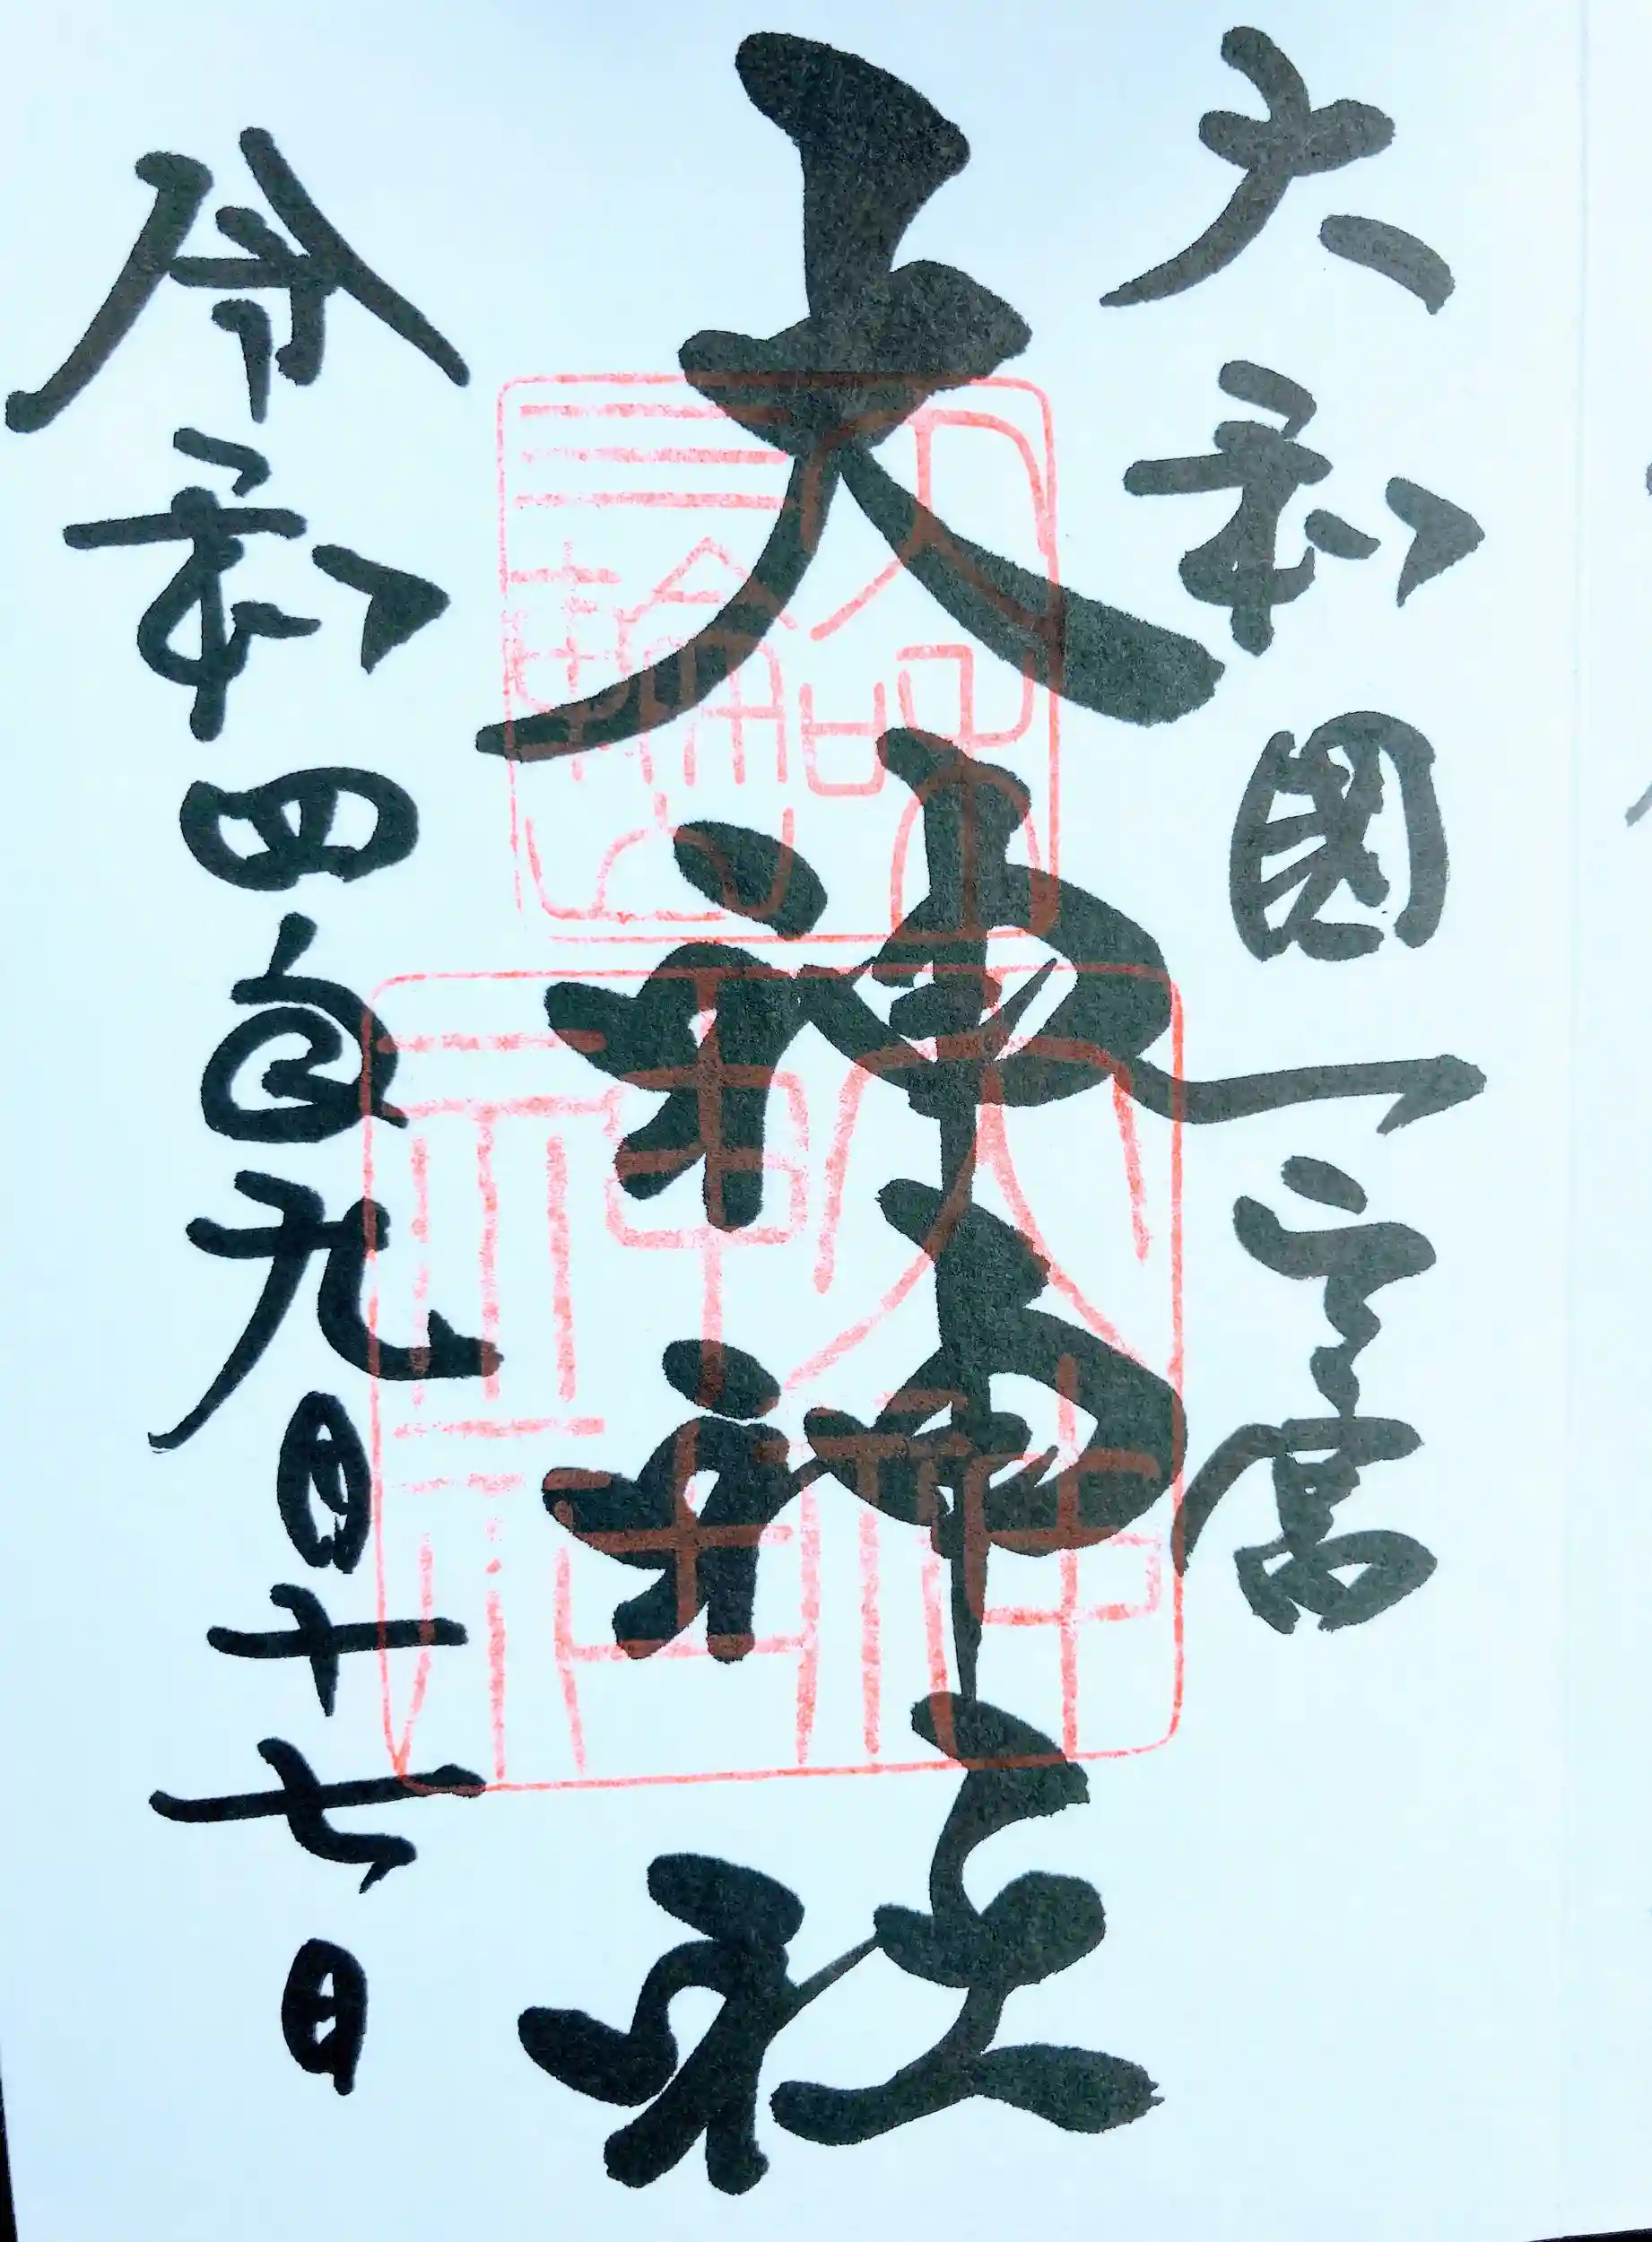 大和國一之宮
大神神社
令和四年九月十七日
大神
神社